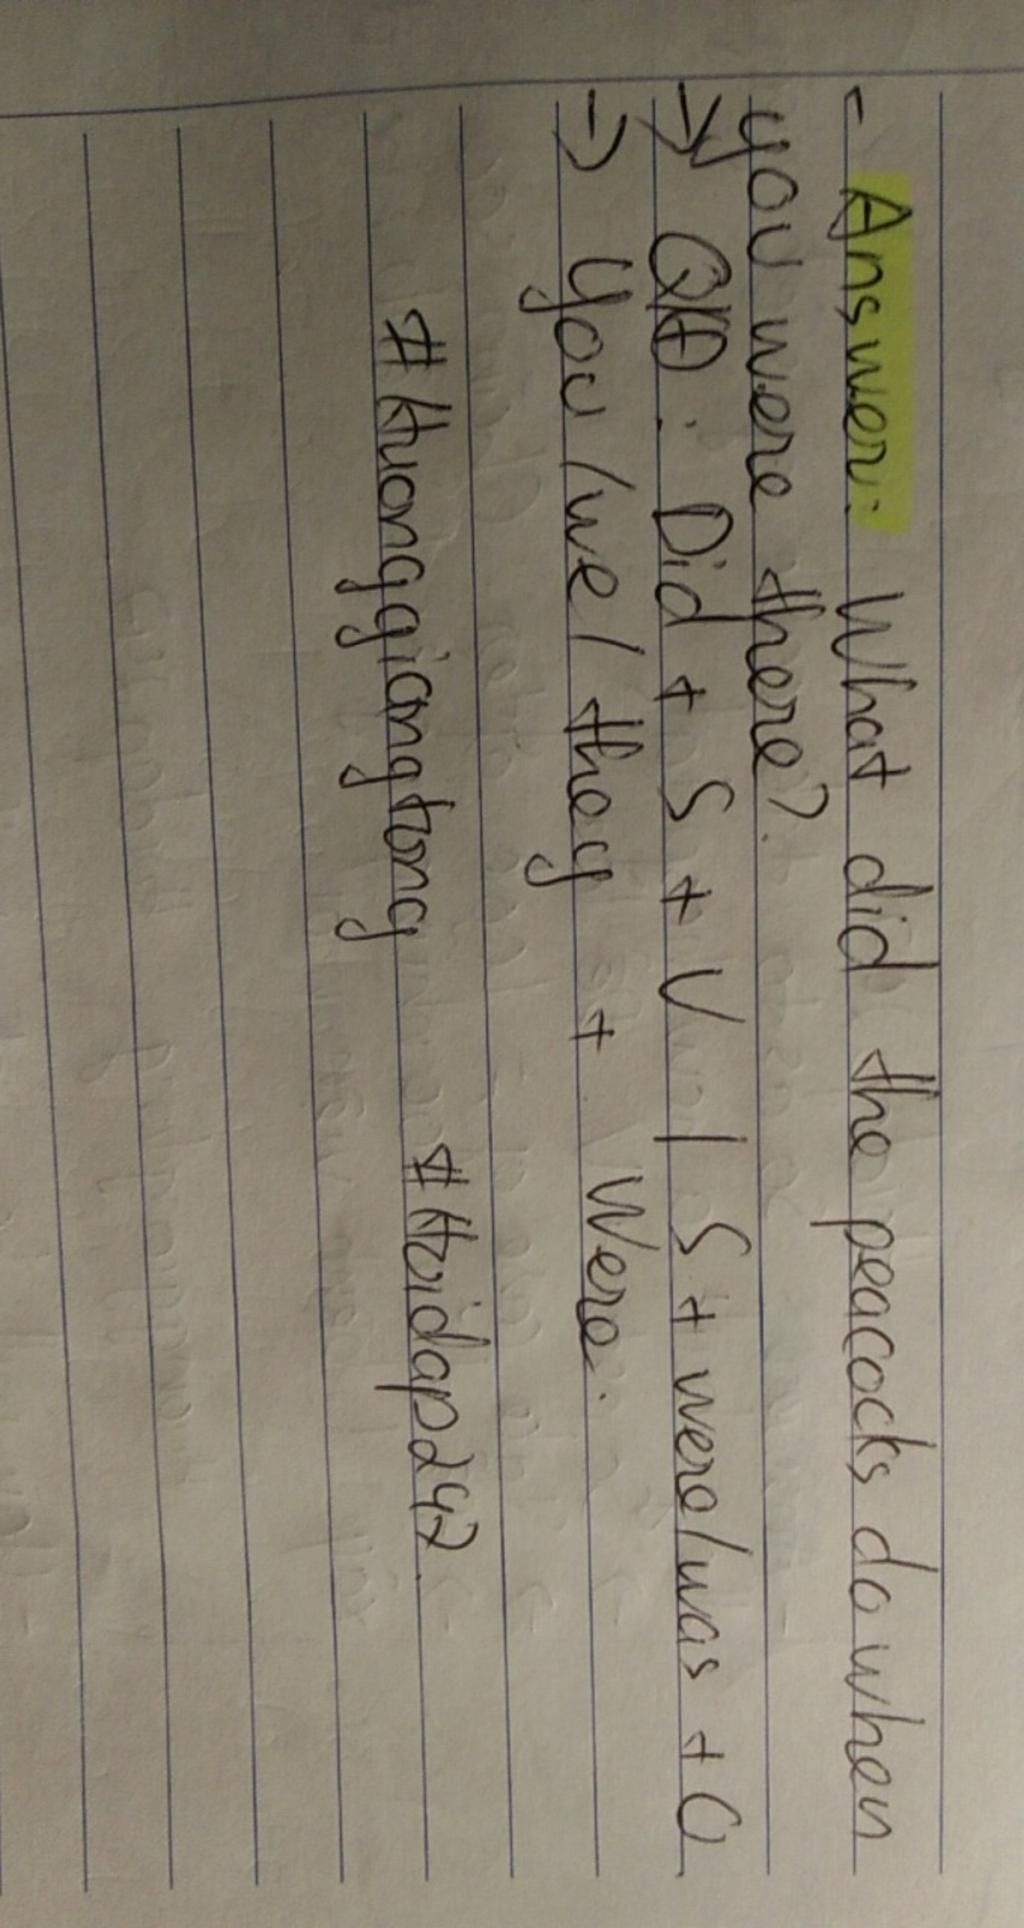 - Answer: What did the peacocks do when
you were there?
→ QKĐ: Did + S + V / S + were/was + O
→ You / we / they + Were.
#Huonggiangtong #Hoidap247